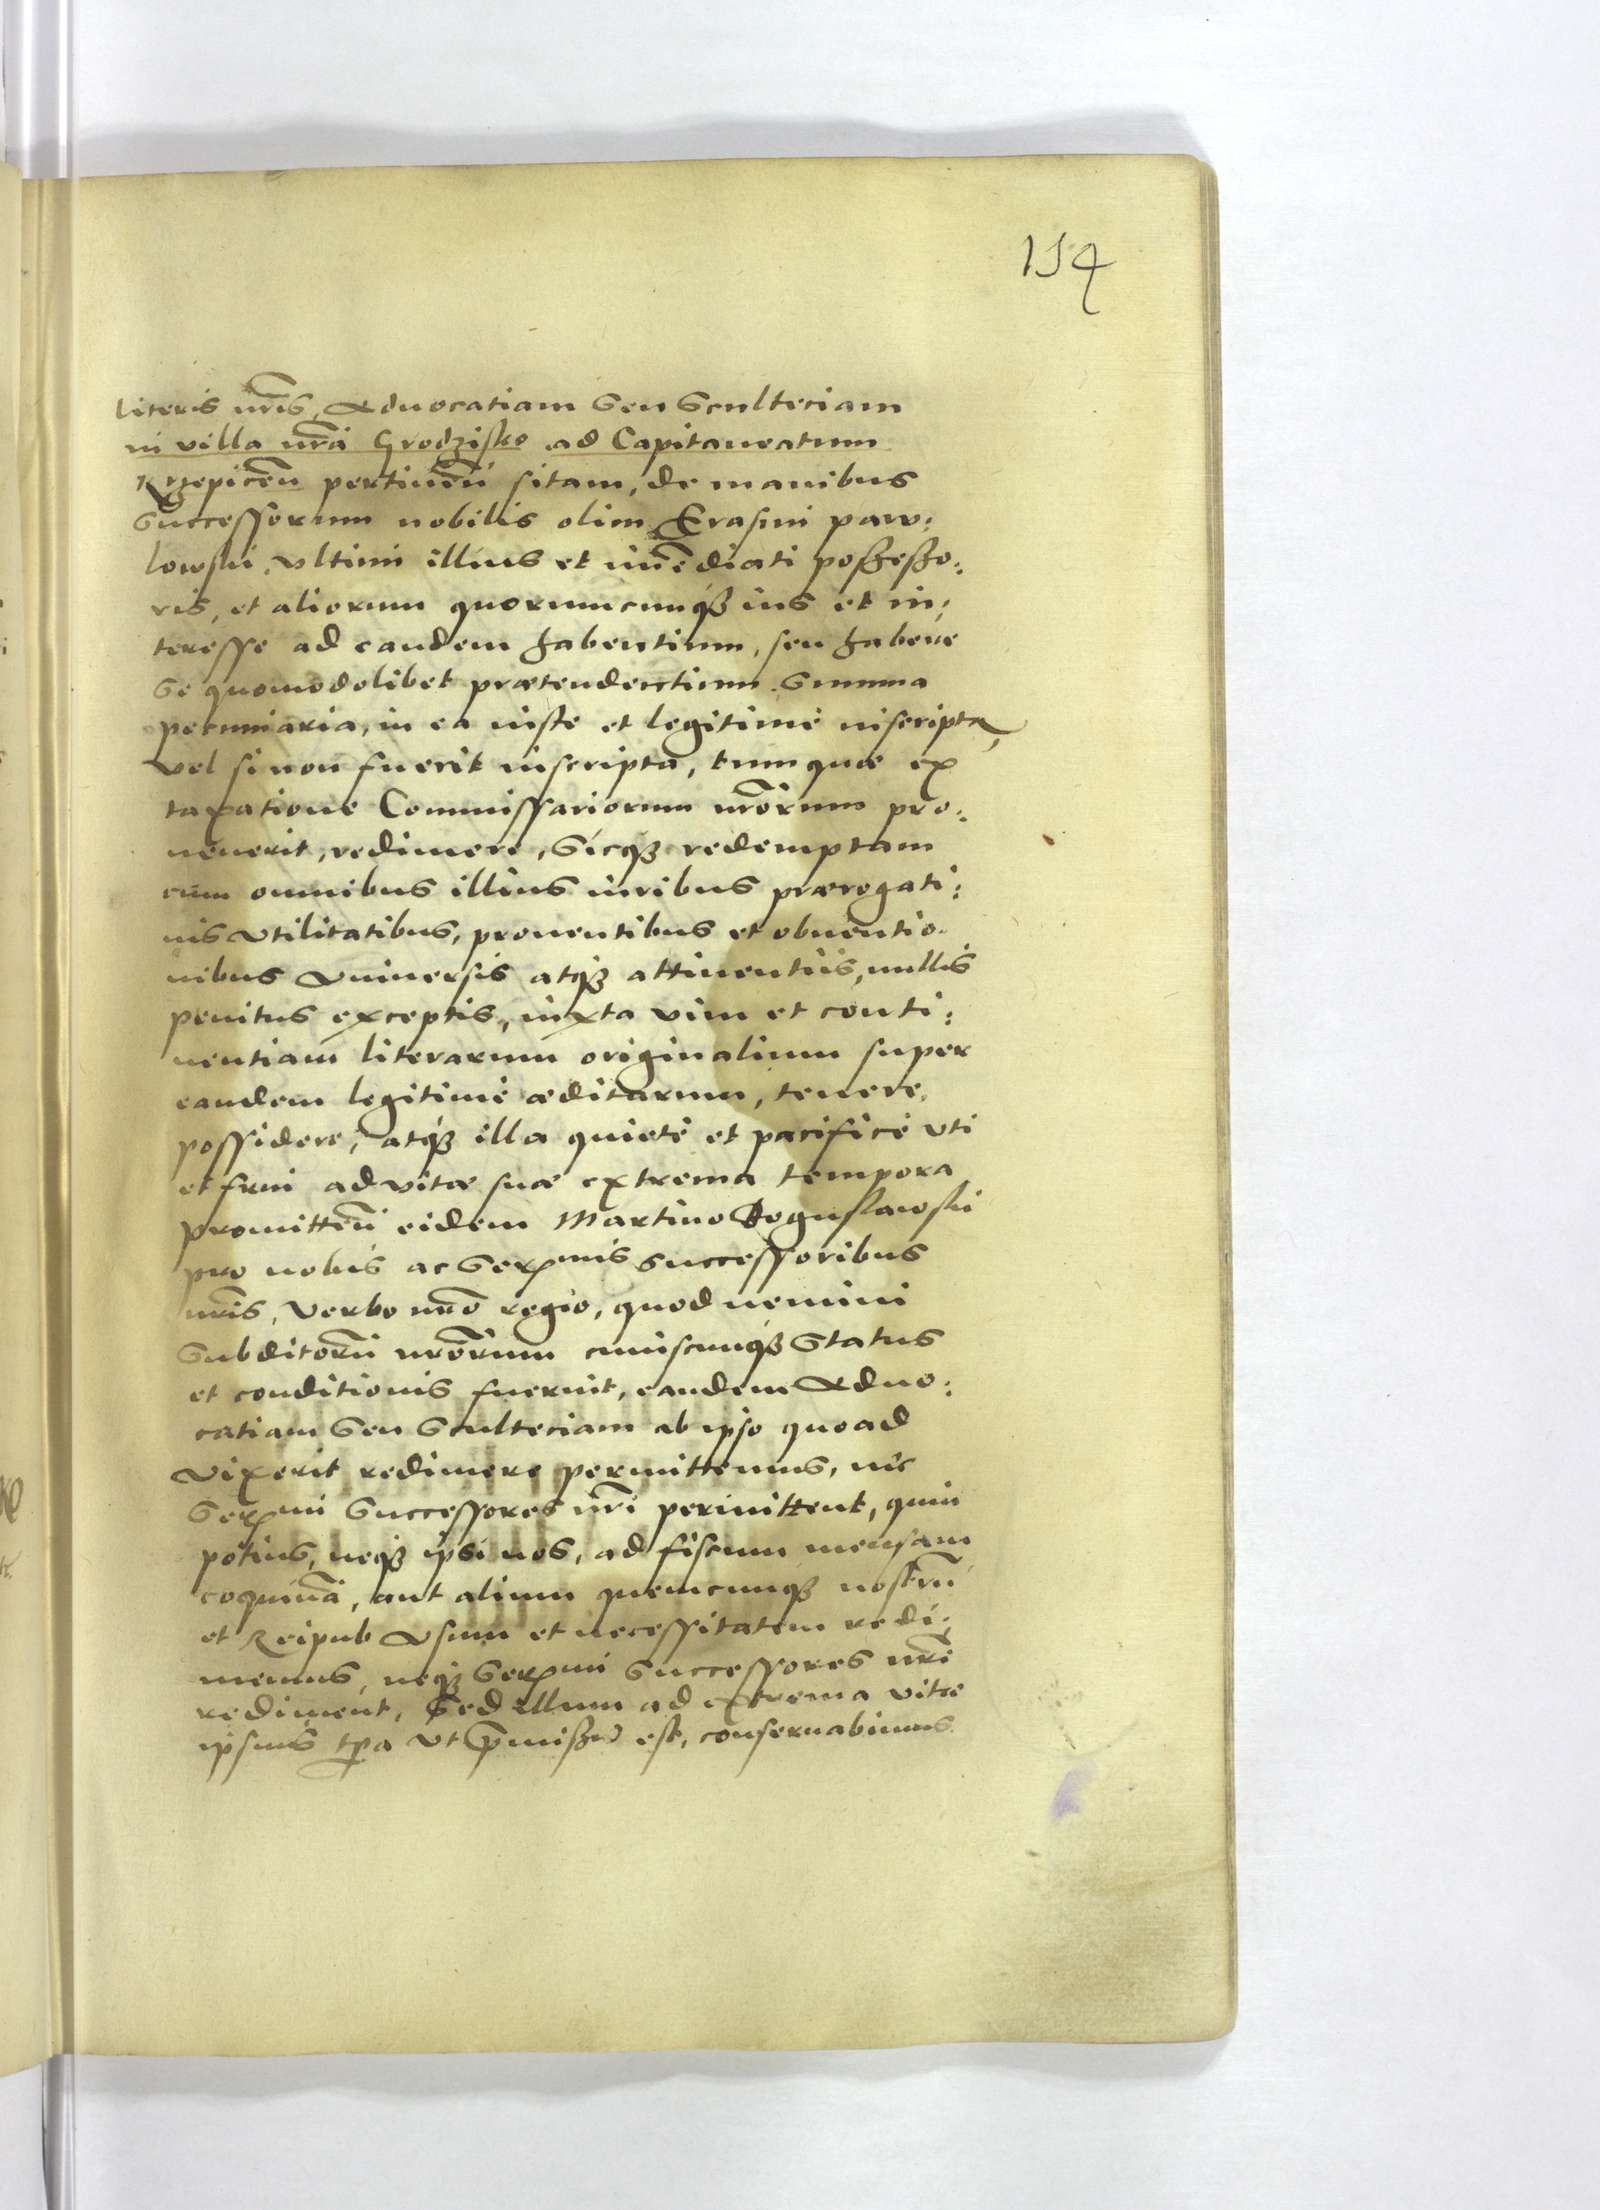 154
literis nr̃is, Aduocatiam Seu Scultetiam
in villa nr̃a Grodzisko ad Capitaneatum
Krzepicen̄ pertinen̄ sitam, de manibus
Successorum nobilis olim Erasmi paw:
lowski, vltimi illius et im̄ediati possesso:
ris, et aliorum quorumcunq₃ ius et in:
teresse ad eandem habentium, seu habere
Se quomodolibet prætendentium. Summa
pecuniaria, in ea iuste et legitimè inscripta,
vel si non fuerit inscripta, tum quæ ex
taxatione Commissariorum nr̃orum pro:
uenerit, redimere, Sicq₃ redemptam
cum omnibus illius iuribus prærogati:
uis vtilitatibus, prouentibus et obuentio:
nibus vniuersis atq₃ attinentiis, nullis
penitus exceptis, iuxta vim et conti:
nentiam literarum originalium super
eandem legitimè æditarum, tenere,
possidere, atq₃ illa quietè et pacificè vti
et frui ad vitæ suæ extrema tempora
promitten̄ eidem Martino Boguslawski
pro nobis ac Ser^mis Successoribus
nr̃is, Verbo nr̃o regio, quod nemini
Subditorū nr̃orum cuiuscunq₃ Status
et conditionis fuerint, eandem Aduo:
catiam Seu Scultetiam ab ipso quoad
vixerit redimere permittemus, nec
Ser^mi Successores nr̃i permittent, quin
potius, neq₃ ipsi nos, ad fiscum mensam
coquinā, aut alium quemcunq₃ nostrū
et Reipub vsum et necessitatem redi:
memus, neq₃ Ser^mi Successores nr̃i
rediment, Sed illum ad extrema vitæ
ipsius tp̄a vt p̄missū est, conseruabimus